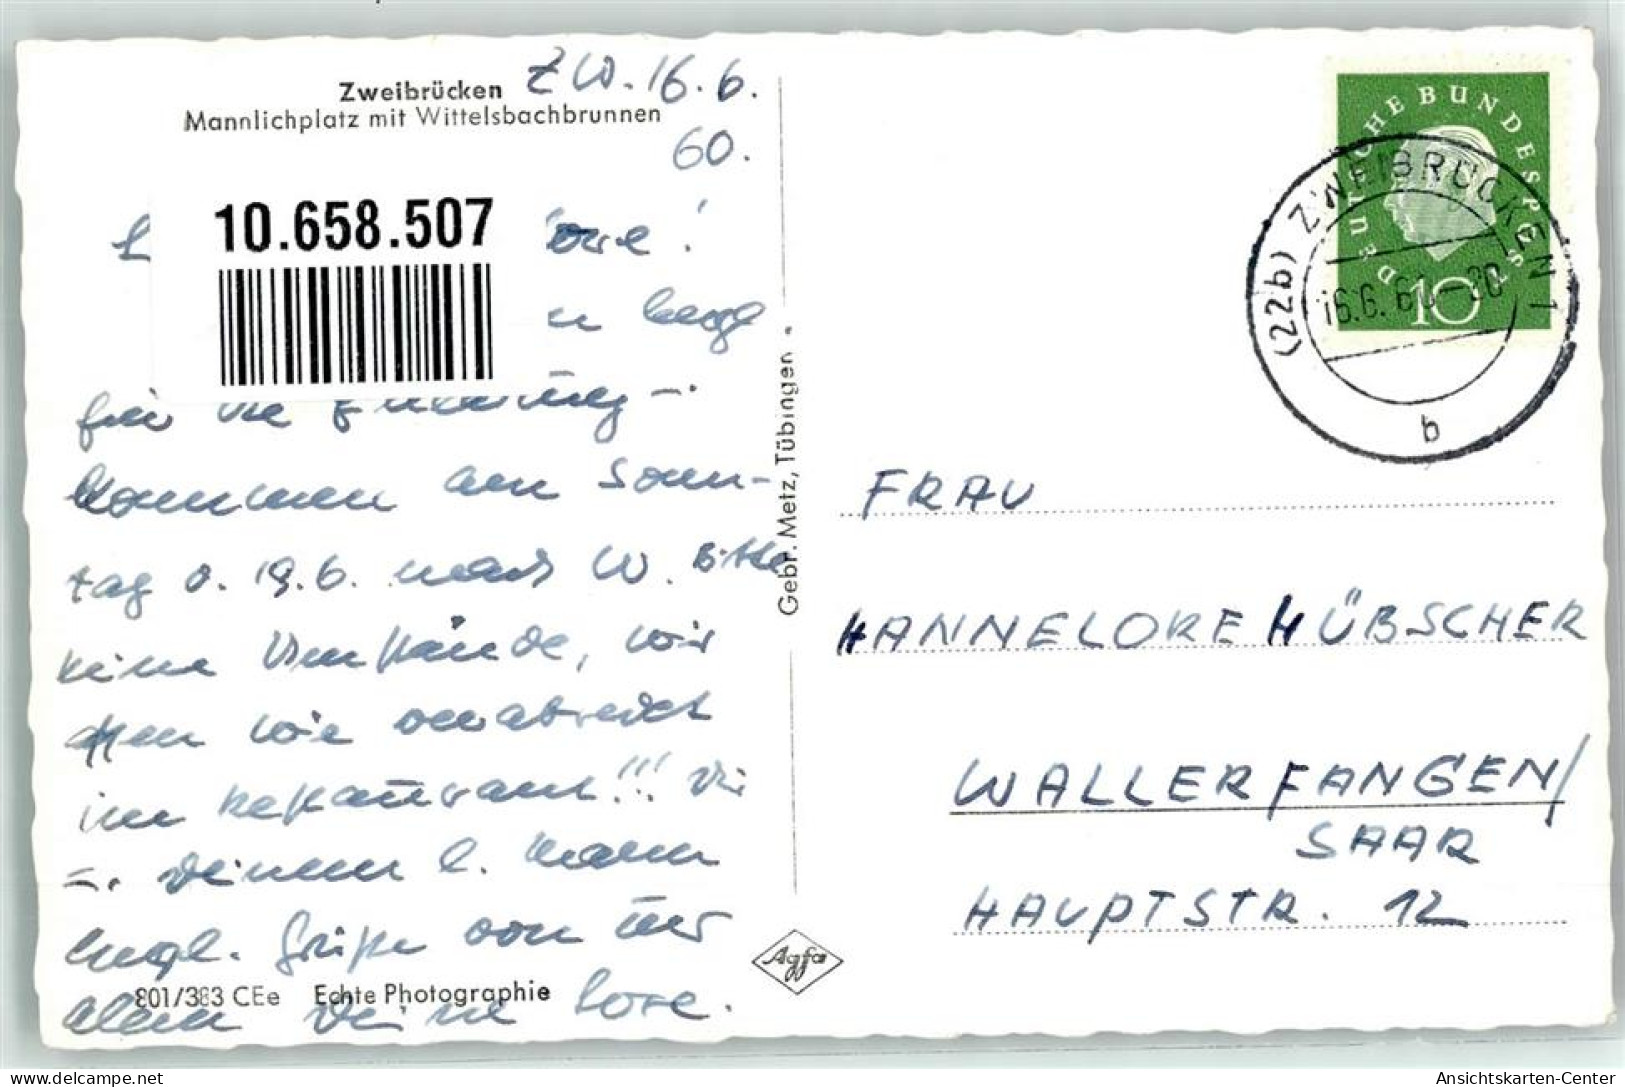 Zweibrücken
Mannlichplatz mit Wittelsbachbrunnen
ZW. 16.6.
60.
10.658.507
L
ore!
für die
kommen am Sonn-
tag d. 19.6. nach W. Bitte
keine Umstände, wir
essen wie verabredet
im Restaurant!!! Dir
u. Deinem l. Mann
hrzl. Grüße von uns
allen Deine Lore.
801/383 CEe Echte Photographie
Gebr. Metz, Tübingen
Agfa
DEUTSCHE BUNDESPOST
10
(22b) ZWEIBRÜCKEN 1
16.6.60-20
b
FRAU
HANNELORE HÜBSCHER
WALLERFANGEN/
SAAR
HAUPTSTR. 12
www.delcampe.net
Ansichtskarten-Center